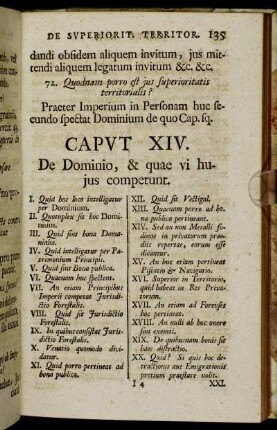 DE SVPERIORIT. TERRITOR. 135
dandi obsidem aliquem invitum, jus mit-
tendi aliquem legatum invitum &c. &c.
72. Quodnam porro est jus superioritatis
territorialis?
Praeter Imperium in Personam huc se-
cundo spectat Dominium de quo Cap. sq.
CAPVT XIV.
De Dominio, & quae vi hu-
jus competunt.
I. Quid hoc loco intelligatur
per Dominium.
II. Quotuplex sit hoc Domi-
nium.
III. Quid sint bona Doma-
nialia.
IV. Quid intelligatur per Pa-
trimonium Principis.
V. Quid sint Bona publica.
VI. Quaenam huc spectent.
VII. An etiam Principibus
Imperii competat Jurisdi-
ctio Forestalis.
VIII. Quid sit Jurisdictio
Forestalis.
IX. In quibus consistat Juris-
dictio Forestalis.
X. Venatio quomodo divi-
datur.
XI. Quid porro pertineat ad
bona publica.
XII. Quid sit Vectigal.
XIII. Quaenam porro ad bo-
na publica pertineant.
XIV. Sed an non Metalli fo-
dinae in privatorum prae-
diis repertae, eorum esse
dicantur.
XV. An huc etiam pertineat
Piscatio & Navigatio.
XVI. Superior in Territorio,
quid habeat in Res Priva-
torum.
XVII. An etiam ad Forenses
hoc pertineat.
XVIII. An nulli ab hoc onere
sint exemti.
XIX. De quibusnam bonis sit
haec distractio.
XX. Quid? Si quis hoc de-
tractionis aut Emigrationis
pretium praestare nolit.
I 4
XXI.